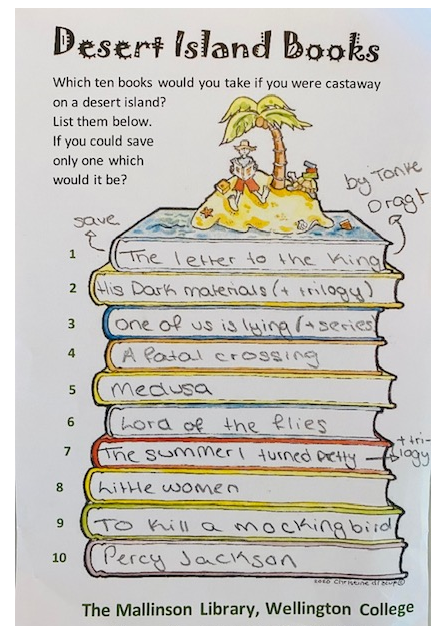 Desert Island Books
Which ten books would you take if you were castaway
on a desert island?
List them below.
If you could save
only one which
would it be?
by Tonke
Dragt
save
1 The letter to the King
2 His Dark materials (+ trilogy)
3 One of us is lying (+ series
4 A fatal crossing
5 Medusa
6 Lord of the flies
7 The summer I turned pretty + tri-
logy
8 Little women
9 To kill a mockingbird
10 Percy Jackson
2020 Christine
The Mallinson Library, Wellington College